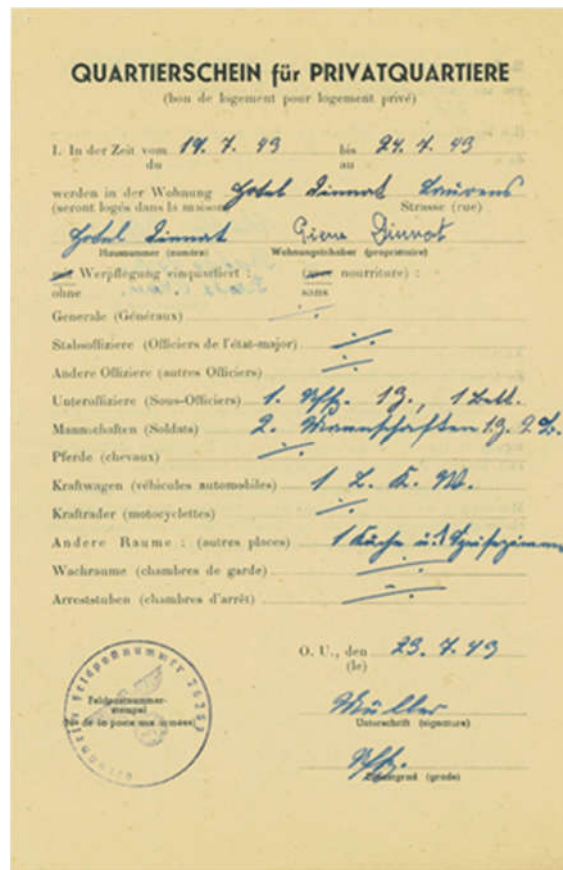 QUARTIERSCHEIN für PRIVATQUARTIERE
(bon de logement pour logement privé)
1. In der Zeit vom 19. 7. 43 bis 24. 7. 43
du au
werden in der Wohnung Hotel Dinnat Laurens
(seront logés dans la maison Strasse (rue)
Hotel Dinnat Pierre Dinnat
Hausnummer (numéro) Wohnungsinhaber (propriétaire)
mit Werpflegung einquartiert : (avec nourriture) :
ohne sans
Generale (Généraux) ./.
Stabsoffiziere (Officiers de l'état-major) ./.
Andere Offiziere (autres Officiers) ./.
Unteroffiziere (Sous-Officiers) 1. Uffz. 1 Z., 1 Bett.
Mannschaften (Soldats) 2. Mannschaften 1 Z. 2 B.
Pferde (chevaux) ./.
Kraftwagen (véhicules automobiles) 1 L. K. W.
Kraftrader (motocyclettes) ./.
Andere Raume : (autres places) 1 Küche u. 1 Speisezimmer
Wachraume (chambres de garde) ./.
Arreststuben (chambres d'arrêt) ./.
O. U., den 23. 7. 43
(le)
Müller
Unterschrift (signature)
Uffz.
Dienstgrad (grade)
Feldpostnummer
Feldpostnummer-
stempel
(No de la poste aux armées)